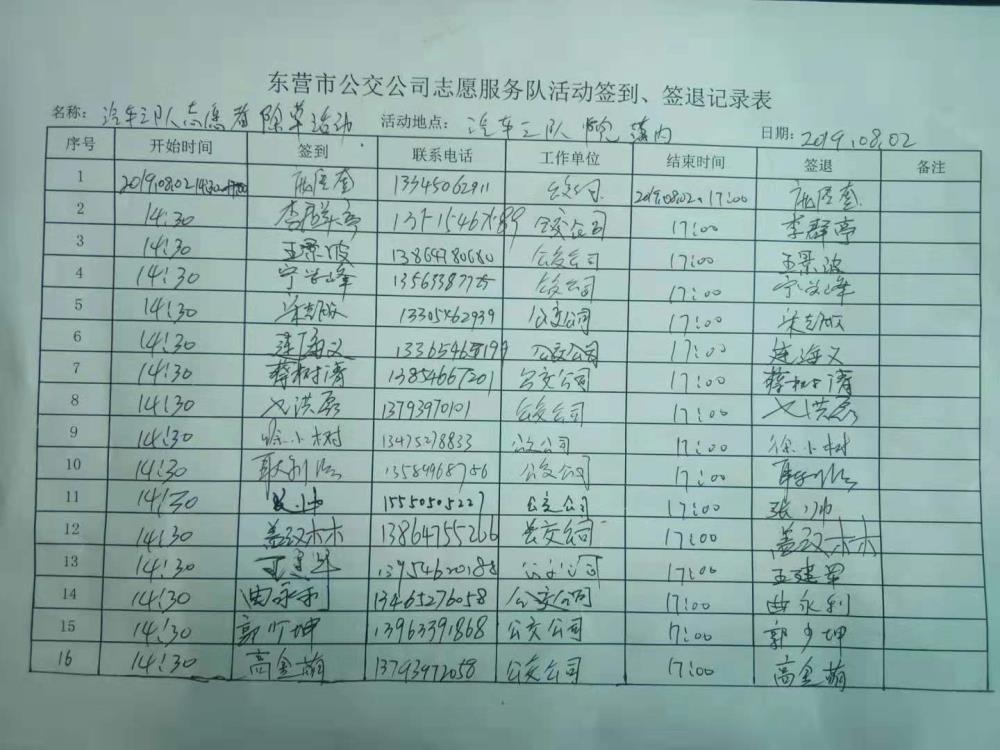 东营市公交公司志愿服务队活动签到、签退记录表
名称: 汽车三队志愿者除草活动 活动地点: 汽车三队院墙内 日期: 2019.08.02
序号 开始时间 签到 联系电话 工作单位 结束时间 签退 备注
1 2019.08.02 14:30 13345062911 公交公司 2019.08.02. 17:00
2 14:30 李群亭 公交公司 17:00 李群亭
3 14:30 王景波 13864780680 公交公司 17:00 王景波
4 14:30 宁学峰 公交公司 17:00 宁学峰
5 14:30 公交公司 17:00
6 14:30 连海义 公交公司 17:00 连海义
7 14:30 蔡树清 13854667201 公交公司 17:00 蔡树清
8 14:30 13793970101 公交公司 17:00
9 14:30 徐小树 13475278833 公交公司 17:00 徐小树
10 14:30 公交公司 17:00
11 14:30 15550505227 公交公司 17:00 张帅
12 14:30 盖双林 13864755266 公交公司 17:00 盖双林
13 14:30 13954620188 公交公司 17:00 王建军
14 14:30 曲永利 13465276058 公交公司 17:00 曲永利
15 14:30 郭少坤 13963391868 公交公司 17:00 郭少坤
16 14:30 高金萌 13793972058 公交公司 17:00 高金萌